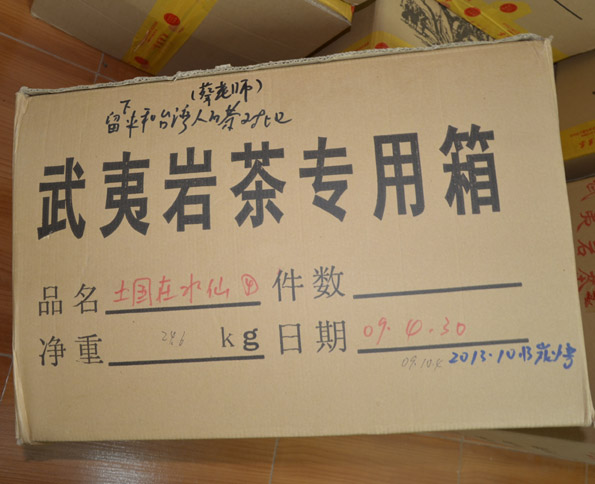 (蔡老师)
留下来和台湾人的茶对比
武夷岩茶专用箱
品名 土国在水仙 ④ 件数
净重 286 kg 日期 09.4.30
09.10.4 2013.10.